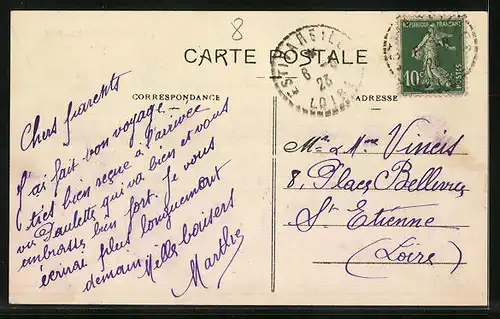 8
CARTE POSTALE
ESTIVAREILLES
6 - 8
23
LOIRE
REPUBLIQUE FRANÇAISE
10c
POSTES
CORRESPONDANCE
ADRESSE
Chers parents
J'ai fait bon voyage
très bien reçue à l'arrivée
vu Paulette qui va bien et vous
embrasse bien fort. Je vous
écrirai plus longuement
demain Mille baisers
Marthe
Mr & Mme Vincis
8, Place Bellevue
St Etienne
(Loire)